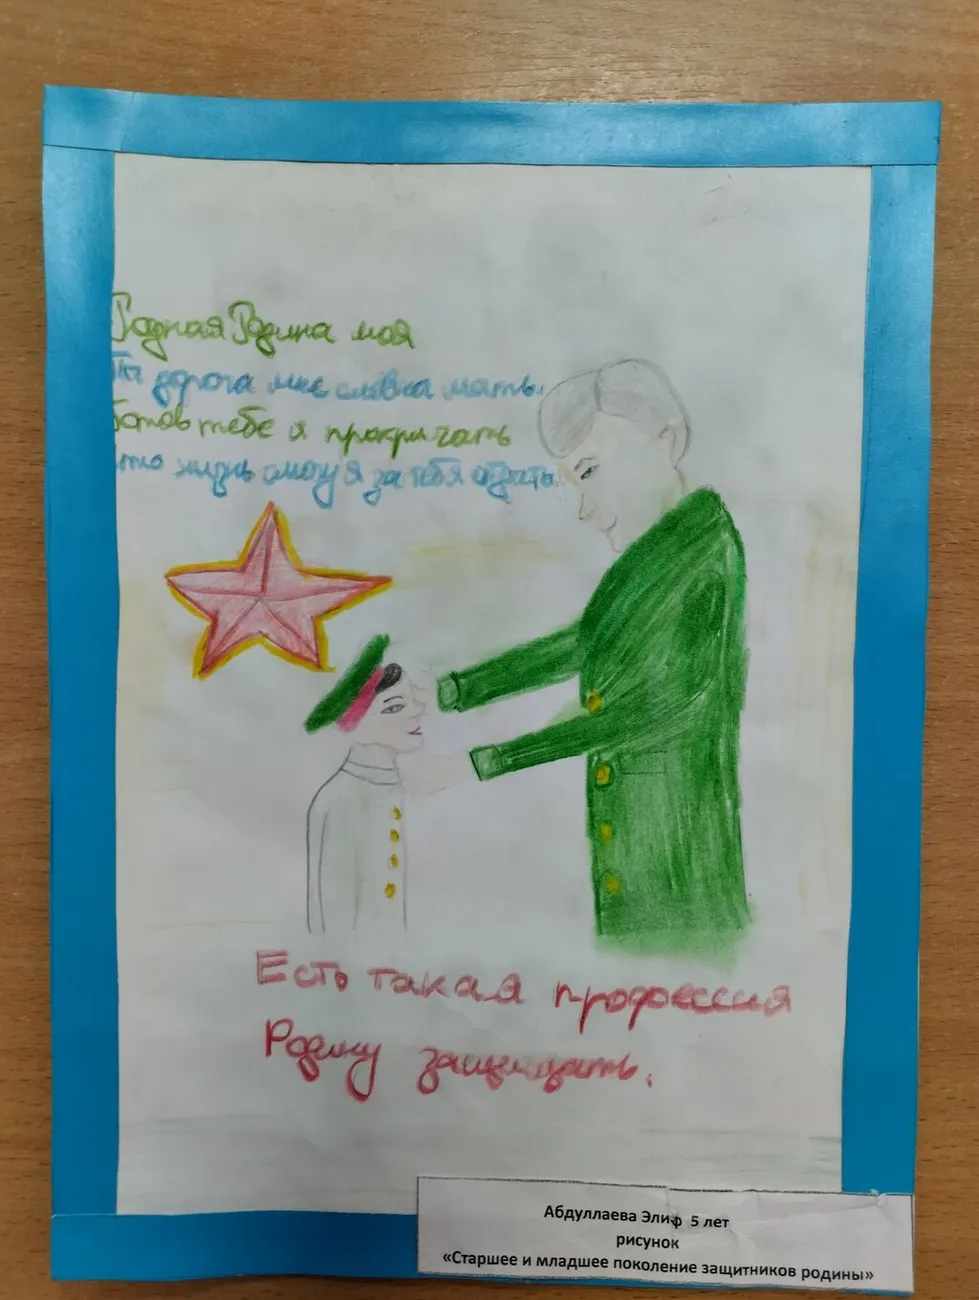 Родная Родина моя
Ты дорога мне словна мать.
Готов тебе я прокричать
что жизнь смогу я за тебя отдать.
Есть такая профессия
Родину защищать.
Абдуллаева Элиф 5 лет
рисунок
«Старшее и младшее поколение защитников родины»